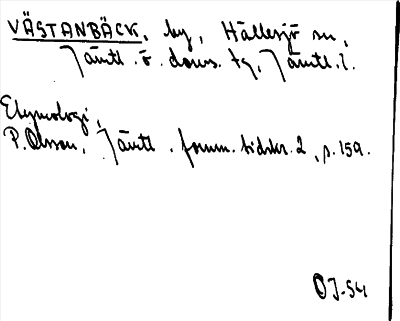 VÄSTANBÄCK, by, Hällesjö sn,
Jämtl. ö. doms. tg, Jämtl. l.
Etymologi,
P. Olsson, Jämtl. fornm. tidskr. 2, s. 159.
OJ-54